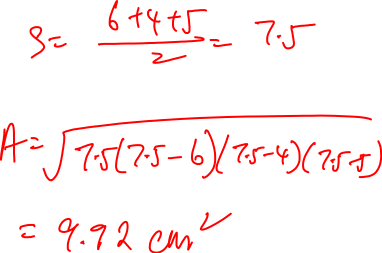 S = (6+4+5)/2 = 7.5
A = √(7.5(7.5-6)(7.5-4)(7.5-5))
= 9.92 cm²